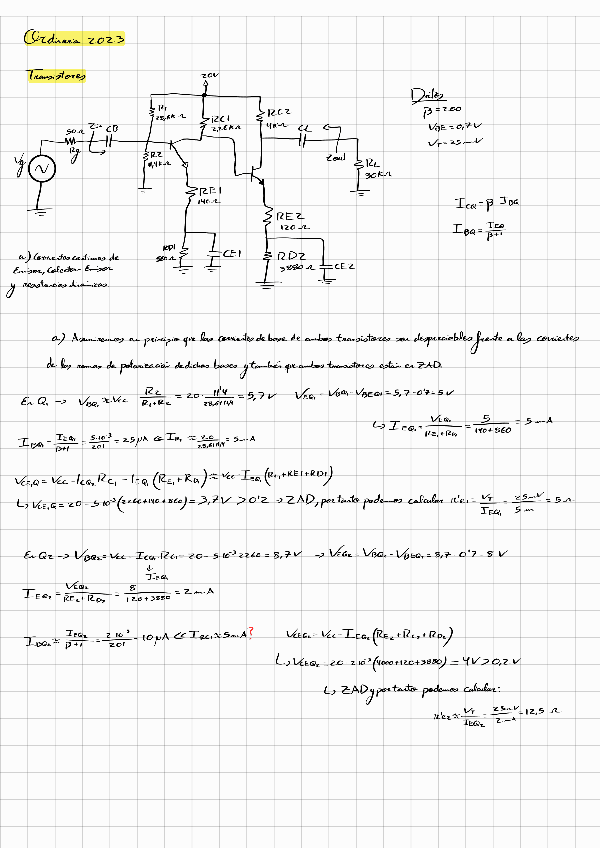 Ordinaria 2023
Transistores
20V
Datos
β=200
VBE=0,7V
VT=25mV
R1
28,6KΩ
RC1
2,26KΩ
RC2
4KΩ
CL
Zout
RL
30KΩ
50Ω
Rg
Zin
CB
Vg
R2
11,4KΩ
RE1
140Ω
RE2
120Ω
RD1
860Ω
CE1
RD2
3880Ω
CE2
ICQ=β IBQ
IBQ=IEQ/β+1
a) Corrientes continuas de
Emisor, Colector-Emisor
y resistencias dinámicas.
a) Asumiremos en principio que las corrientes de base de ambos transistores son despreciables frente a las corrientes
de las ramas de polarización de dichas bases y también que ambos transistores están en ZAD.
En Q1 → VBQ1 ≈ VCC R2/R1+R2 = 20· 11'4/28,6+11,4 = 5,7V VEQ1=VBQ1-VBEQ1=5,7-0'7=5V
↳ IEQ1=VEQ1/RE1+RD1=5/140+860=5mA
IBQ1=IEQ1/β+1=5·10³/201=25μA << IR1≈20/28,6+11,4=5mA
VCE1Q=VCC-ICQ1RC1-IEQ1(RE1+RD1)≈VCC-IEQ1(RC1+RE1+RD1)
↳ VCE1Q=20-5·10⁻³(2260+140+860)=3,7V>0'2 → ZAD, por tanto podemos calcular r'e1=VT/IEQ1=25mV/5m=5Ω
En Q2 → VBQ2=VCC-ICQ1·RC1=20-5·10⁻³·2260=8,7V → VEQ2=VBQ2-VBEQ2=8,7-0'7=8V
↓
IEQ1
IEQ2=VEQ2/RE2+RD2=8/120+3880=2mA
IBQ2≈IEQ2/β+1=2·10³/201=10μA << IRC1≈5mA?
VCEQ2=VCC-IEQ2(RE2+RC2+RD2)
↳ VCEQ2=20-2·10⁻³(4000+120+3880)=4V>0,2V
↳ ZAD y por tanto podemos calcular:
r'e2≈VT/IEQ2=25mV/2mA=12,5Ω